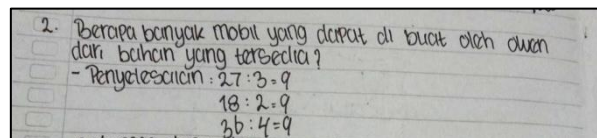 2. Berapa banyak mobil yang dapat di buat oleh owen
dari bahan yang tersedia?
- Penyelesaian : 27 : 3 = 9
18 : 2 = 9
36 : 4 = 9